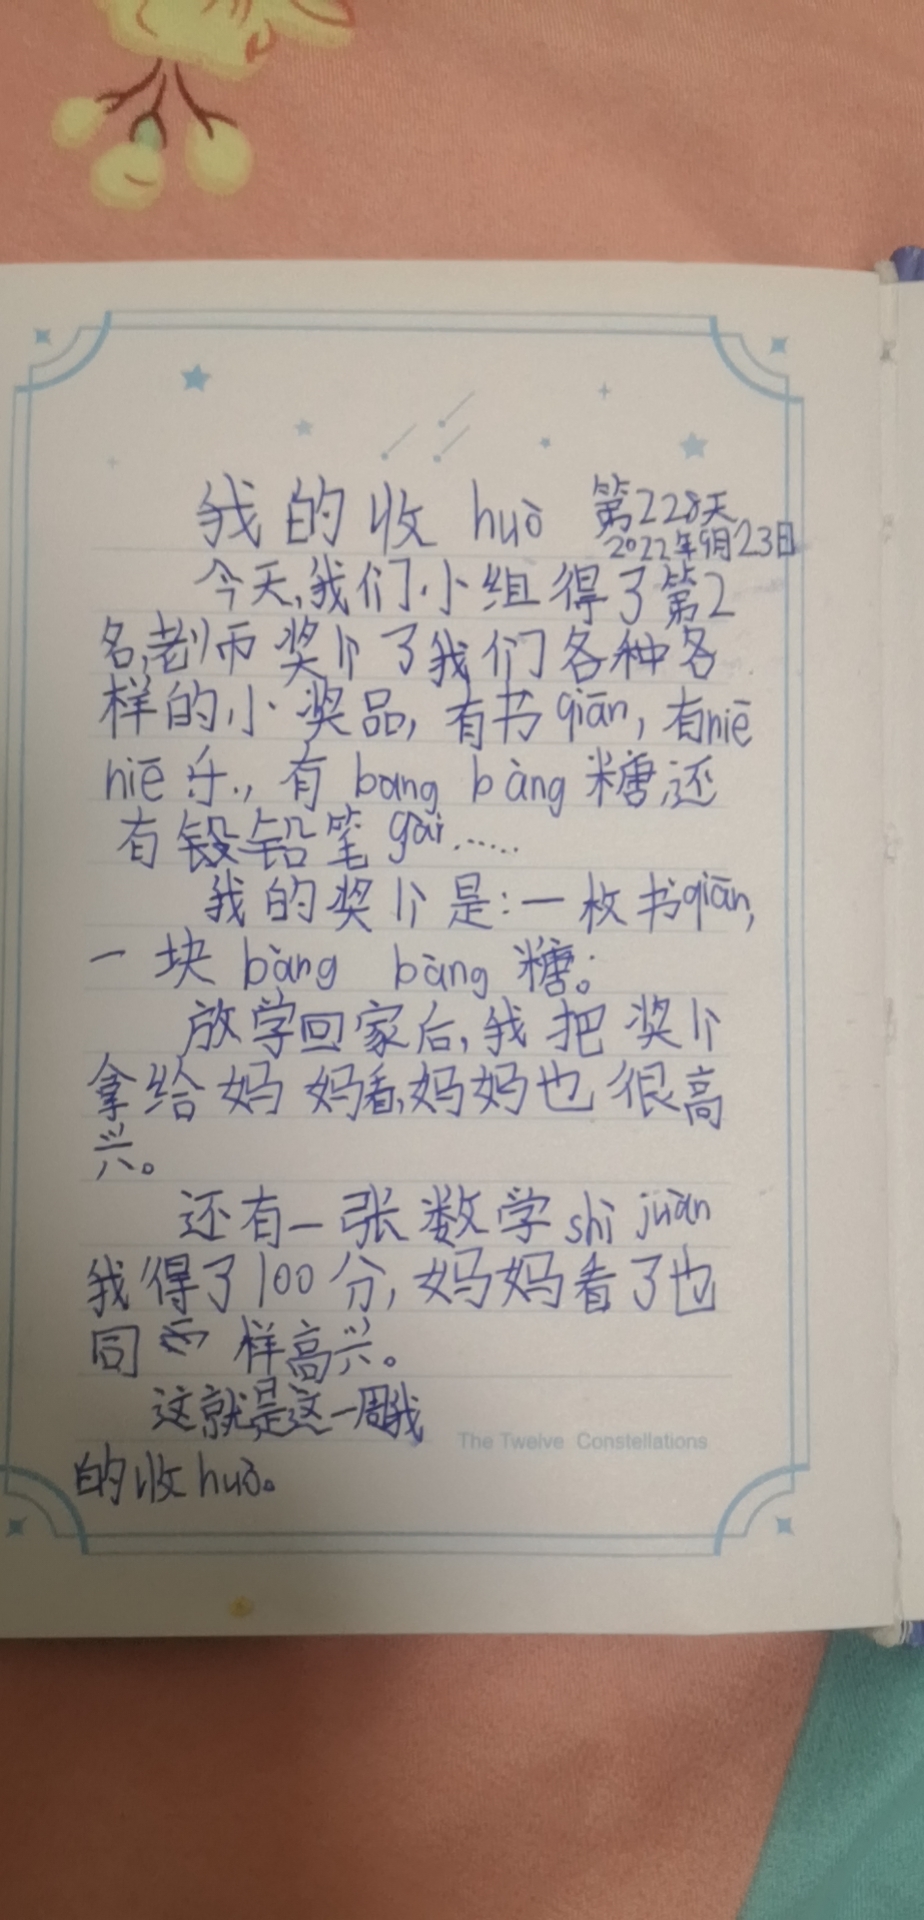 我的收 huò 第228天
2022年9月23日
今天,我们小组得了第2
名,老师奖励了我们各种各
样的小奖品,有书qiān,有niē
niē乐.,有 bang bàng 糖,还
有铅笔gài……
我的奖励是:一枚书qiān,
一块 bàng bàng 糖。
放学回家后,我把奖励
拿给妈妈看,妈妈也很高
兴。
还有一张数学shì juàn
我得了100分,妈妈看了也
同 样高兴。
这就是这一周我
The Twelve Constellations
的收huò。